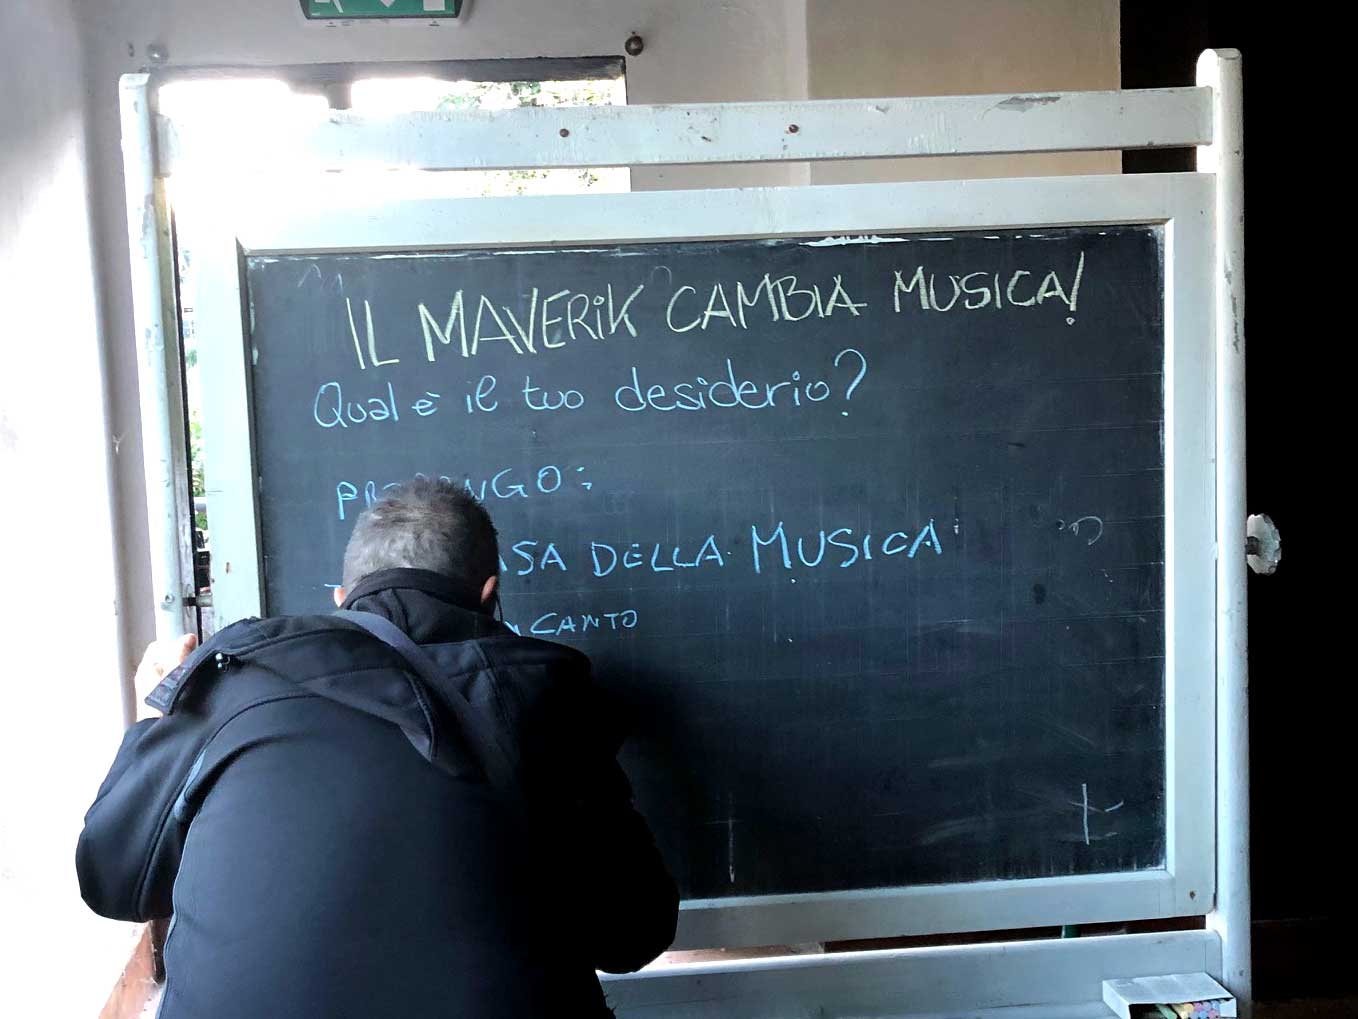 IL MAVERiK CAMBIA MUSICA!
Qual è il tuo desiderio?
DELLA MUSICA